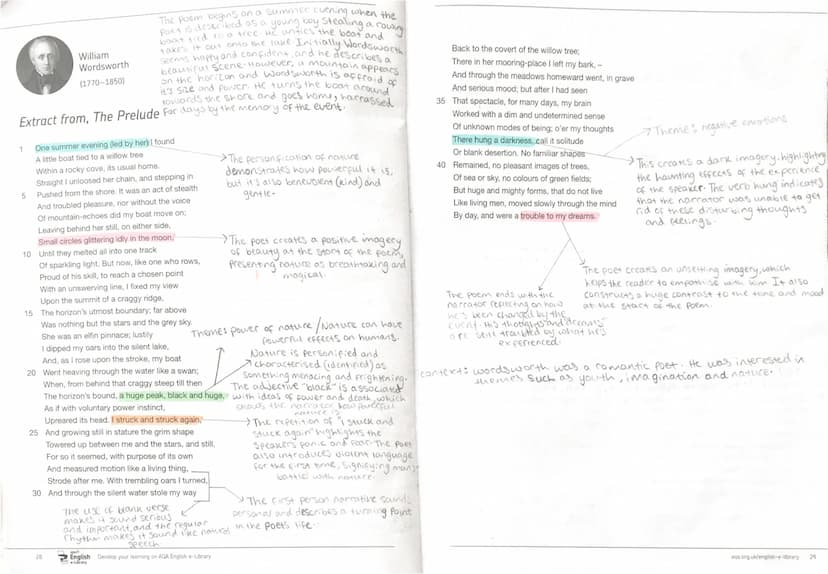 The poem begins on a summer evening when the
poet is described as a young boy stealing a rowing
boat tied to a tree. He unties the boat and
takes it out onto the lake Initially Wordsworth
seems happy and confident, and he describes a
beautiful scene. However, a mountain appears
on the horizon and Wordsworth is affraid of
it's size and power. He turns the boat around
towards the shore and goes home, harrassed
for days by the memory of the event.
William
Wordsworth
(1770–1850)
Extract from, The Prelude
1 One summer evening (led by her) I found
A little boat tied to a willow tree
Within a rocky cove, its usual home.
Straight I unloosed her chain, and stepping in
5 Pushed from the shore. It was an act of stealth
And troubled pleasure, nor without the voice
Of mountain-echoes did my boat move on;
Leaving behind her still, on either side,
Small circles glittering idly in the moon,
10 Until they melted all into one track
Of sparkling light. But now, like one who rows,
Proud of his skill, to reach a chosen point
With an unswerving line, I fixed my view
Upon the summit of a craggy ridge,
15 The horizon's utmost boundary; far above
Was nothing but the stars and the grey sky.
She was an elfin pinnace; lustily
I dipped my oars into the silent lake,
And, as I rose upon the stroke, my boat
20 Went heaving through the water like a swan;
When, from behind that craggy steep till then
The horizon's bound, a huge peak, black and huge,
As if with voluntary power instinct,
Upreared its head. I struck and struck again,
25 And growing still in stature the grim shape
Towered up between me and the stars, and still,
For so it seemed, with purpose of its own
And measured motion like a living thing,
Strode after me. With trembling oars I turned,
30 And through the silent water stole my way
The personification of nature
demonstrates how powerful it is,
but it's also benevolent (kind) and
gentle.
The poet creates a positive imagery
of beauty at the start of the poem,
presenting nature as breathtaking and
magical.
Themes power of nature/Nature can have
powerful effects on humans.
Nature is personified and
characterised (identified) as
something menacing and frightening.
The adjective "black" is associated
with ideas of power and death, which
shows the narrator how powerful
nature is
The repetition of "I stuck and
stuck again" highlights the
speakers panic and fear. The poet
also introduces violent language
for the first time, signifying mans
battle with nature.
The first person narrative sounds
personal and describes a turning point
in the poet's life.
The use of blank verse
makes it sound serious
and important, and the regular
rhythm makes it sound like natural
speech
28
aqa
English
e-Library
Develop your learning on AQA English e-Library
Back to the covert of the willow tree;
There in her mooring-place I left my bark, –
And through the meadows homeward went, in grave
And serious mood; but after I had seen
35 That spectacle, for many days, my brain
Worked with a dim and undetermined sense
Of unknown modes of being; o'er my thoughts
There hung a darkness, call it solitude
Or blank desertion. No familiar shapes
40 Remained, no pleasant images of trees,
Of sea or sky, no colours of green fields;
But huge and mighty forms, that do not live
Like living men, moved slowly through the mind
By day, and were a trouble to my dreams.
Theme: negative emotions
This creates a dark imagery, highlighting
the haunting effects of the experience
of the speaker. The verb hung indicates
that the narrator was unable to get
rid of these disturbing thoughts
and feelings.
The poet creates an unsettling imagery, which
helps the reader to empathise with him It also
constructs a huge contrast to the tone and mood
at the start of the poem.
The poem ends with the
narrator reflecting on how
he's been changed by the
event. His thoughts and "dreams"
are still troubled by what he's
experienced.
context: wordsworth was a romantic poet. He was interested in
themes such as youth, imagination and nature.
aqa.org.uk/english-e-library
29